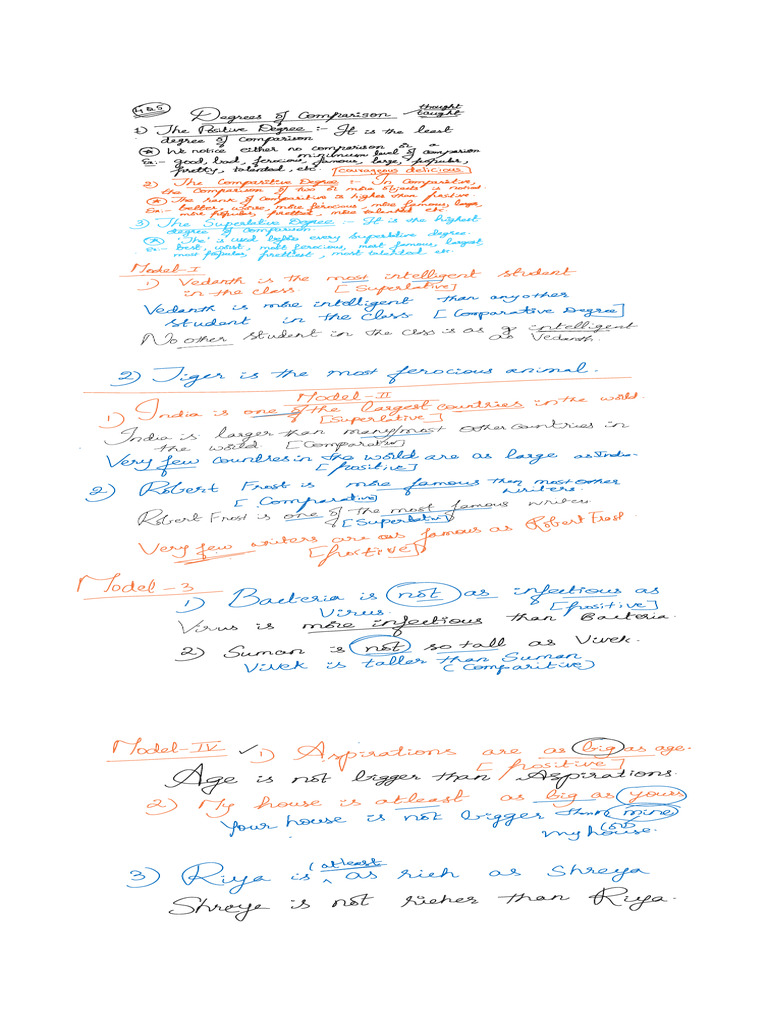 4&5 Degrees of Comparison thought taught
1) The Positive Degree :- It is the least
degree of comparison
We notice either no comparison or a
minimum level of comparison
Ex:- good, bad, ferocious, famous, large, popular,
pretty, talented, etc. [courageous delicious]
2) The Comparitive Degree :- In Comparative,
the comparison of two or more objects is noticed.
The rank of comparitive is higher than positive
Ex:- better, worse, more ferocious, more famous, larger,
more popular, prettier, more talented etc
3) The Superlative Degree :- It is the highest
degree of comparison
'The' is used before every superlative degree.
Ex:- best, worst, most ferocious, most famous, largest,
most popular, prettiest, most talented etc.
Model-I
1) Vedanth is the most intelligent student
in the class. [Superlative]
Vedanth is more intelligent than any other
student in the class [Comparative Degree]
No other student in the class is as intelligent
as Vedanth.
2) Tiger is the most ferocious animal.
Model-II
1) India is one of the largest countries in the world.
[Superlative]
India is larger than many/most other countries in
the world [Comparative]
Very few countries in the world are as large as India.
[positive]
2) Robert Frost is more famous than most other
writers.
[Comparative]
Robert Frost is one of the most famous writer
[Superlative]
Very few writers are as famous as Robert Frost
[positive]
Model-3
1) Bacteria is not as infectious as
Virus. [positive]
Virus is more infectious than Bacteria.
2) Suman is not so tall as Vivek.
Vivek is taller than Suman
(Comparitive)
Model-IV ✓ 1) Aspirations are as big as age.
[positive]
Age is not bigger than Aspirations.
2) My house is atleast as big as yours
Your house is not bigger than mine
(or)
my house.
(atleast
3) Riya is ^ as rich as Shreya
Shreya is not richer than Riya.